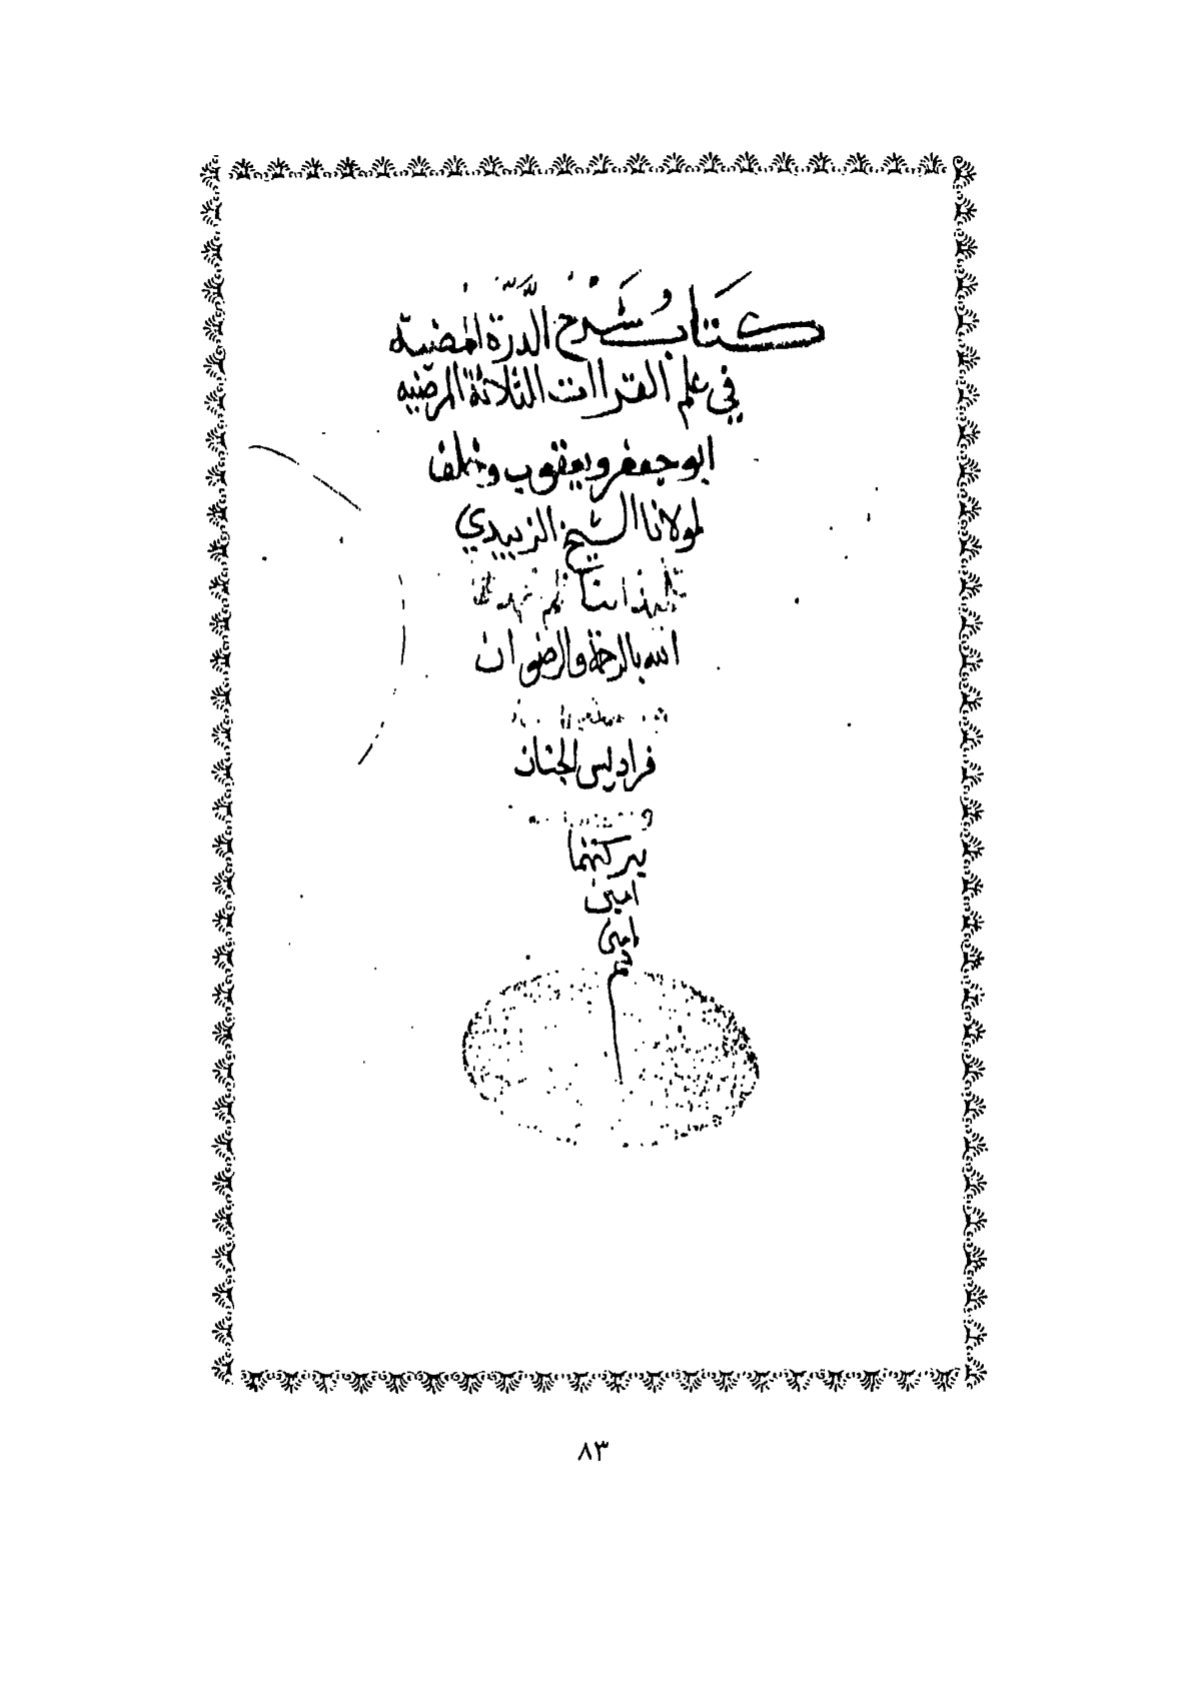 كتاب شرح الدرة المضية
في علم القراات الثلاثة المرضيه
ابو جعفر ويعقوب وخلف
لمولانا الشيخ الزبيدي
تلميذ الناظم
الله بالرحمة والرضوان
فراديس الجنان
ببركتهما
امين
امين
٨٣